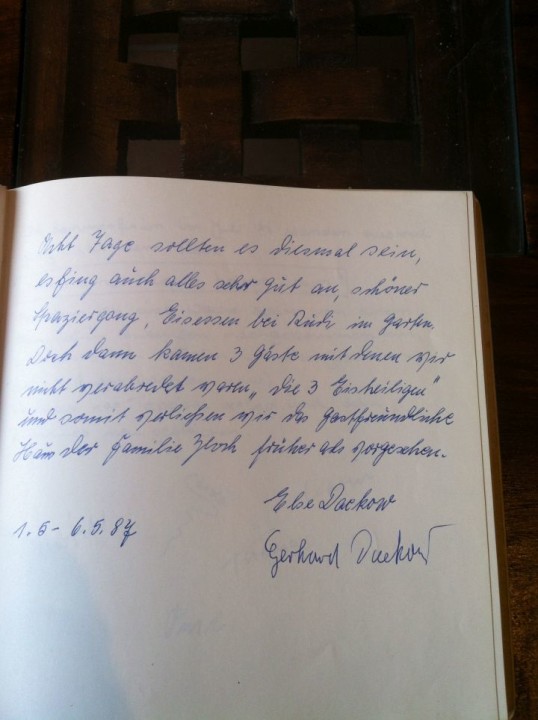 Acht Tage sollten es diesmal sein,
es fing auch alles sehr gut an, schöner
Spaziergang, Eisessen bei Rudi im Garten.
Doch dann kamen 3 Gäste mit denen wir
nicht verabredet waren „die 3 Eisheiligen"
und somit verließen wir das gastfreundliche
Haus der Familie früher als vorgesehen.
Else Dackow
1.5 - 6.5.87
Gerhard Dackow